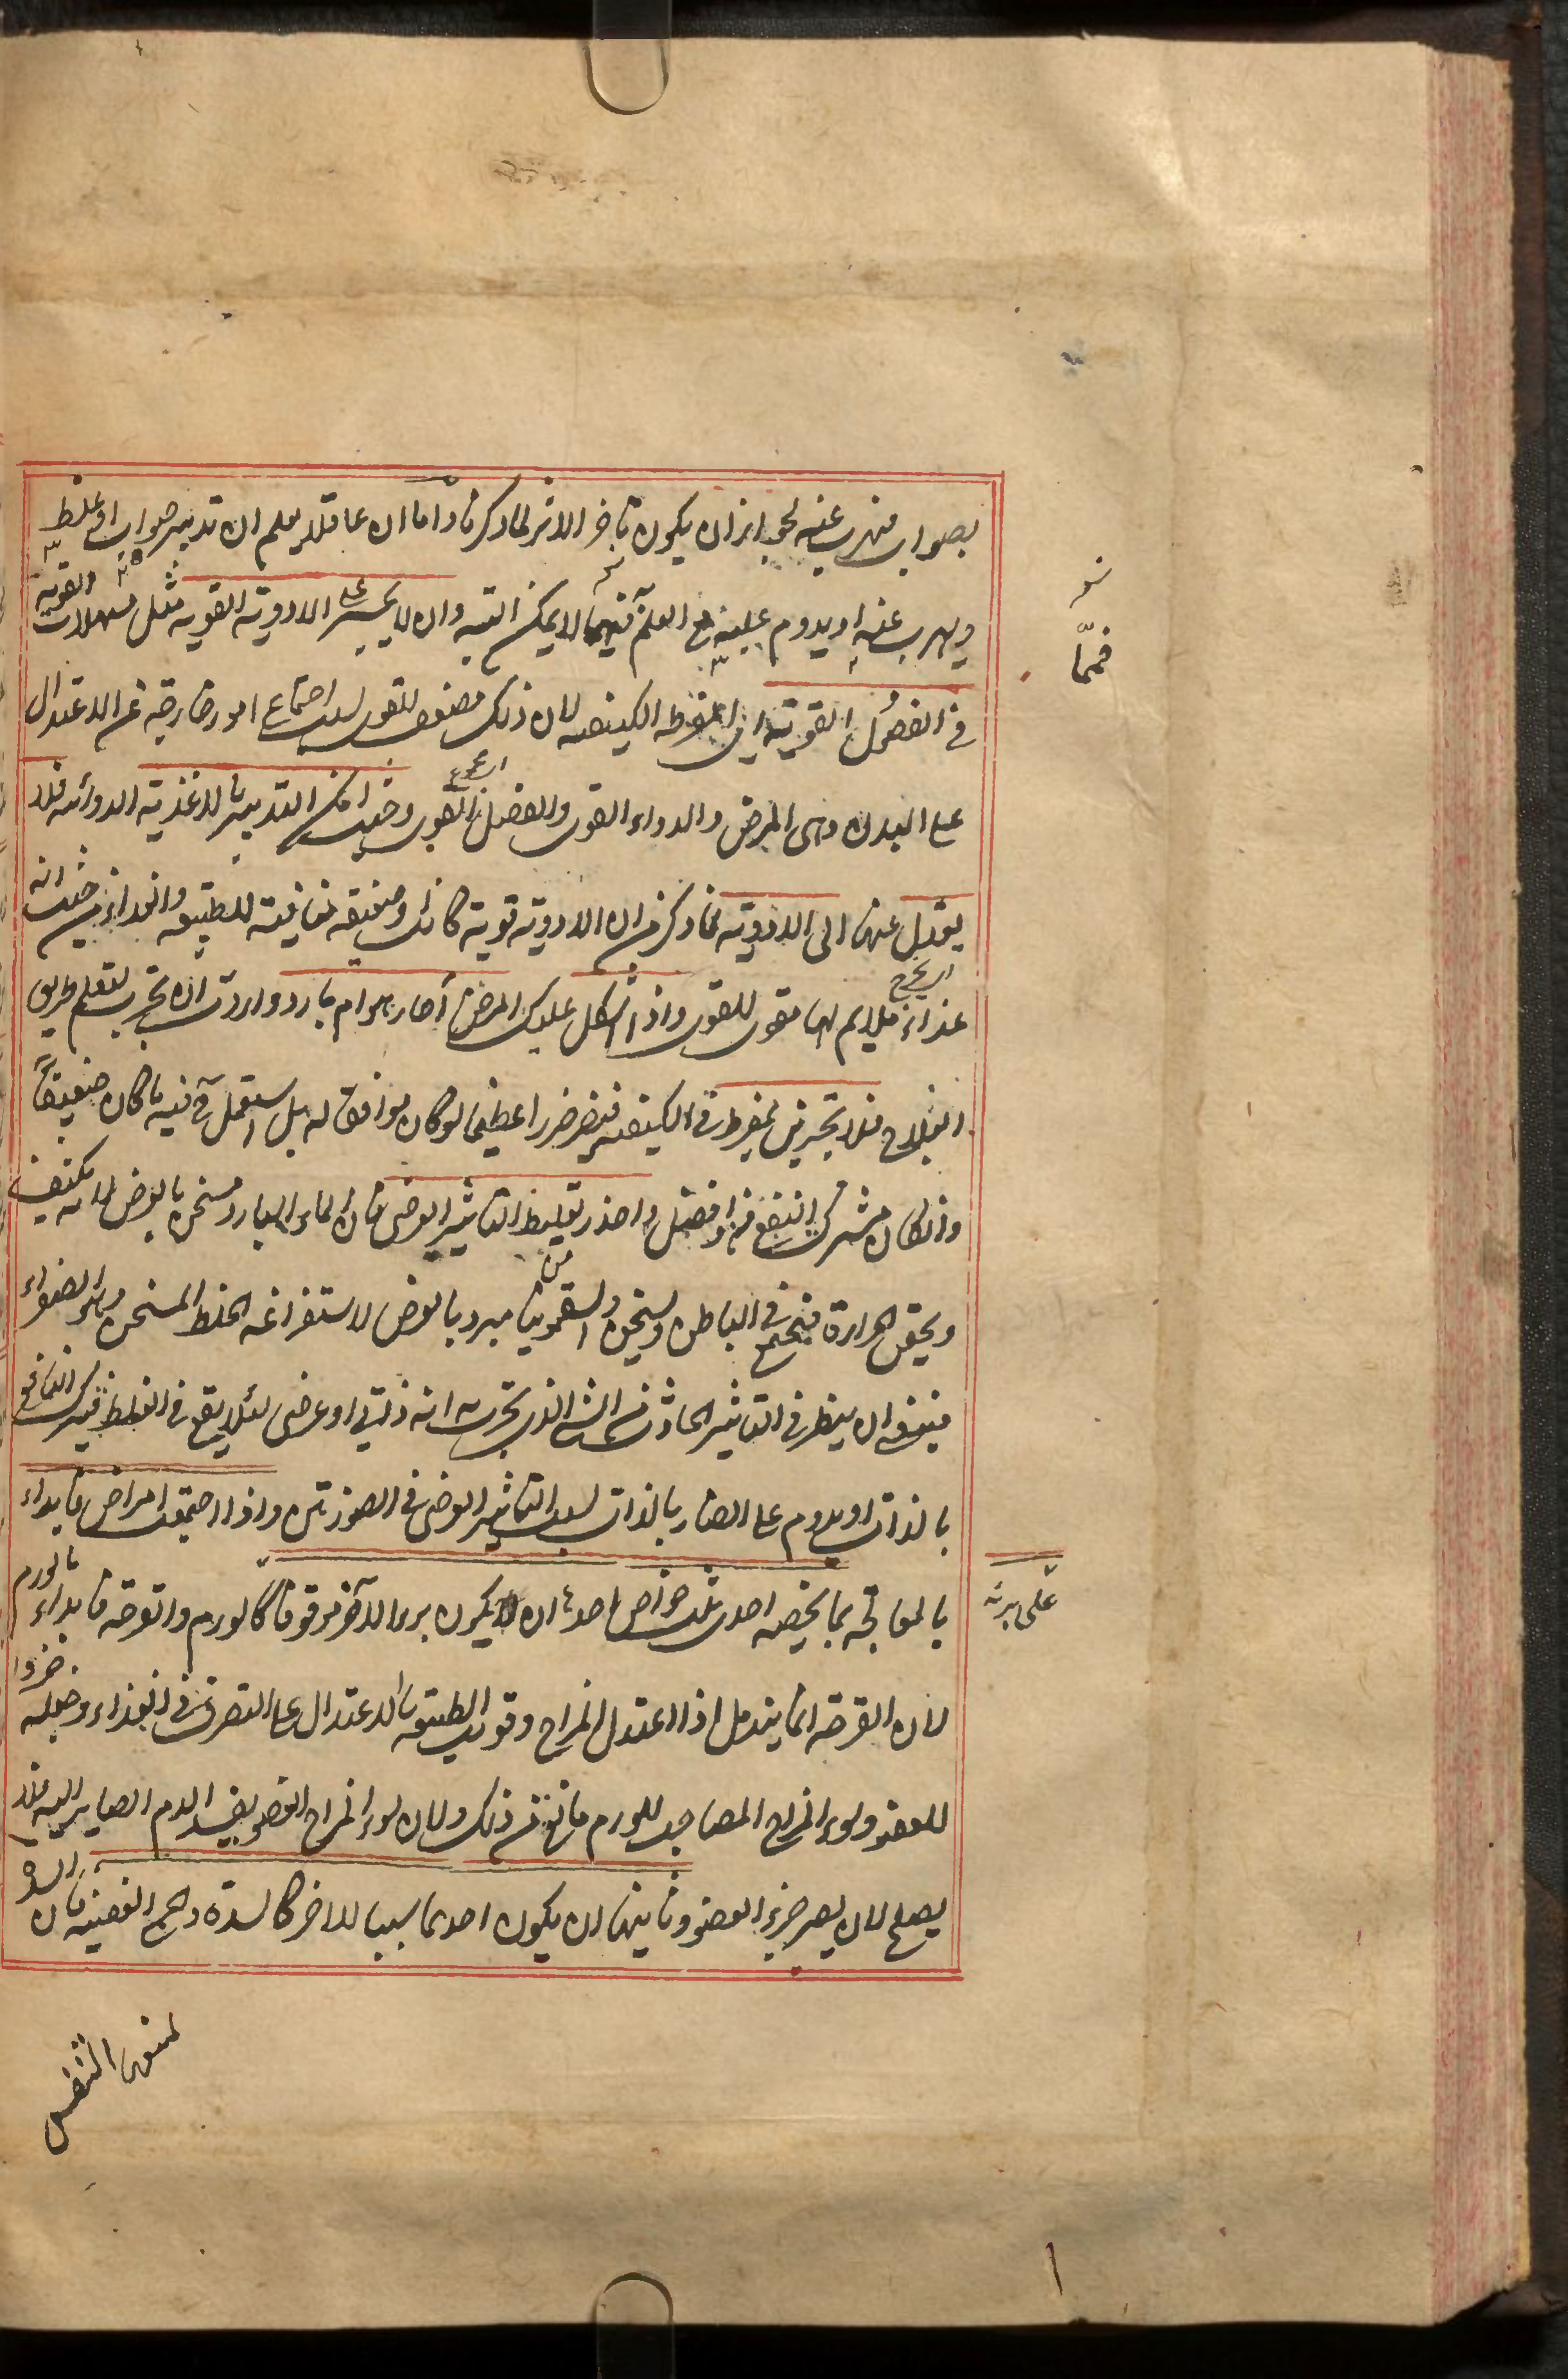 بصواب فيهرب عنه لجواز ان يكون تأخر الاثر لما ذكرنا واما ان عاقلا يعلم ان تدبيره صواب او غلط
ويهرب عنه او يدوم عليه مع العلم فيهما لا يمكن البتة وان لا يجسر على الادوية القوية مثل مسهلات القوية
في الفصول القوية اي المفرطة الكيفية لان ذلك مضعف للقوى بسبب اجتماع امور خارجة عن الاعتدال
على البدن وهي المرض والدواء القوي والفصل القوي وحيث امكن التدبير بالاغذية الدوائية فلا
يعدل عنها الى الادوية لما ذكر من ان الادوية قوية كانت او ضعيفة منافية للطبيعة والغذاء من حيث انه
غذاء ملايم لها مقو للقوى واذا اشكل عليك المرض أحار هو ام بارد واردت ان تجرب لتعلم طريق
العلاج فلا تجربن بمفرط في الكيفية فيضر ضررا عظيما لو كان موافقا له بل استعمل فيه ما كان ضعيفا
واحذر تغليط التأثير العرضي فان الماء البارد مسخن بالعرض لانه يكثف
ويحقن الحرارة فيجتمع في الباطن ويسخن والسقمونيا مبرد بالعرض لاستفراغه الخلط المسخن وهو الصفراء
فينبغي ان ينظر في التأثير الحادث من الشئ الذي تجربه انه ذاتي او عرضي لئلا يقع في الغلط فيترك النافع
بالذات او يدوم على الضار بالذات بسبب التأثير العرضي في الصورتين واذا اجتمعت امراض فابداء
بالمعالجة بما يخصه احدى ثلث خواص احدها ان يكون برء الآخر موقوفا كالورم والقرحة فابداء بالورم
لان القرحة انما يندمل اذا اعتدل المزاج وقويت الطبيعة بالاعتدال على التصرف في الغذاء وجعله جزوا
للعضو وسوء المزاج المصاحب للورم مانع من ذلك ولان سوء المزاج العضو يفسد الدم الصاير اليه فلا
يصلح لان يصير جزء العضو وثانيها ان يكون احدهما سببا للاخر كالسدة وحمى العفنية فان السدة
فمما
على برئه